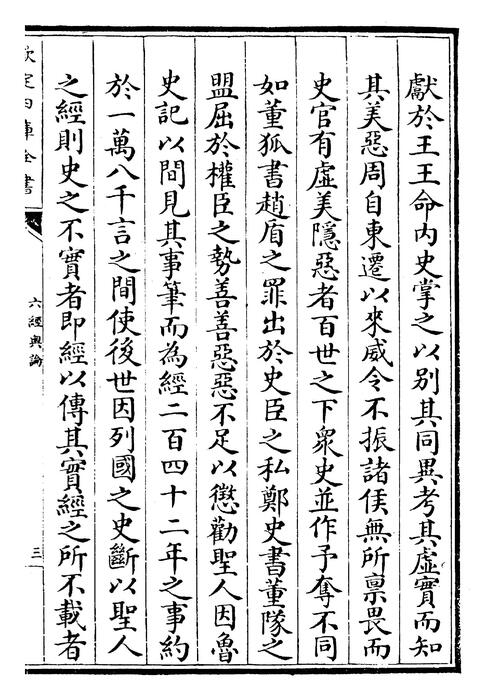 獻於王王命內史掌之以別其同異考其虛實而知
其美惡周自東遷以來威令不振諸侯無所禀畏而
史官有虛美隱惡者百世之下衆史並作予奪不同
如董狐書趙盾之罪出於史臣之私鄭史書董隧之
盟屈於權臣之勢善善惡惡不足以懲勸聖人因魯
史記以間見其事筆而為經二百四十二年之事約
於一萬八千言之間使後世因列國之史斷以聖人
之經則史之不實者即經以傳其實經之所不載者
欽定四庫全書
六經奥論
三